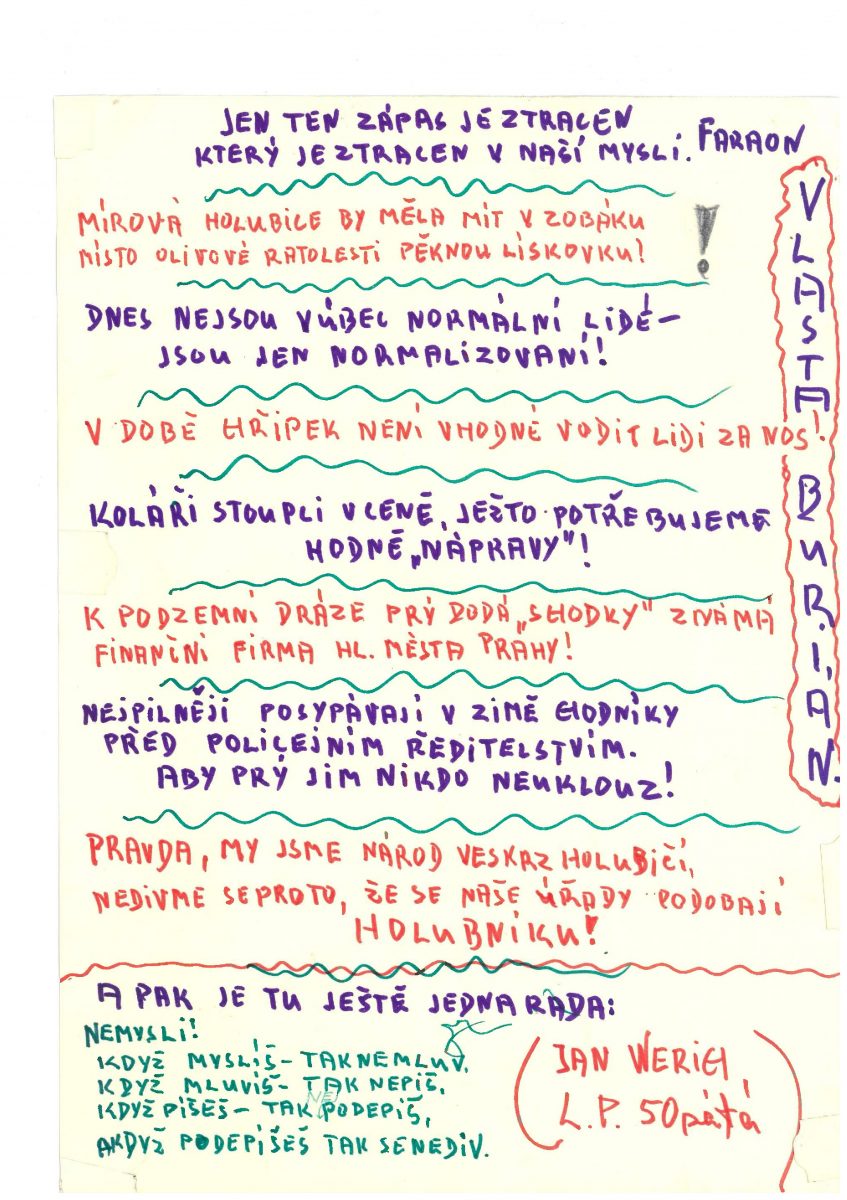 JEN TEN ZÁPAS JE ZTRACEN
KTERÝ JE ZTRACEN V NAŠÍ MYSLI. FARAON
MÍROVÁ HOLUBICE BY MĚLA MÍT V ZOBÁKU
MÍSTO OLIVOVÉ RATOLESTI PĚKNOU LÍSKOVKU!
!
DNES NEJSOU VŮBEC NORMÁLNÍ LIDÉ –
JSOU JEN NORMALIZOVANÍ!
V DOBĚ CHŘIPEK NENÍ VHODNÉ VODIT LIDI ZA NOS!
KOLÁŘI STOUPLI V CENĚ, JEŽTO POTŘEBUJEME
HODNĚ „NÁPRAVY"!
K PODZEMNÍ DRÁZE PRÝ DODÁ „SCHODKY" ZNÁMÁ
FINANČNÍ FIRMA HL. MĚSTA PRAHY!
NEJPILNĚJI POSYPÁVAJÍ V ZIMĚ CHODNÍKY
PŘED POLICEJNÍM ŘEDITELSTVÍM.
ABY PRÝ JIM NIKDO NEUKLOUZ!
PRAVDA, MY JSME NÁROD VESKRZ HOLUBIČÍ,
NEDIVME SE PROTO, ŽE SE NAŠE ÚŘADY PODOBAJÍ
HOLUBNÍKU!
VLASTA BURIAN.
A PAK JE TU JEŠTĚ JEDNA RADA:
NEMYSLI!
KDYŽ MYSLÍŠ – TAK NEMLUV.
KDYŽ MLUVÍŠ – TAK NEPIŠ.
KDYŽ PÍŠEŠ – TAK NEPODEPIŠ,
A KDYŽ PODEPÍŠEŠ TAK SE NEDIV.
(JAN WERICH
L.P. 50pátá)